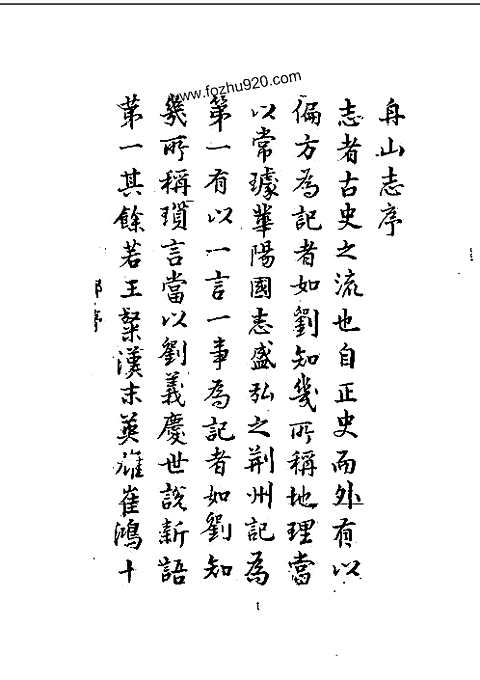 www.fozhu920.com
舟山志序
志者古史之流也自正史而外有以
偏方為記者如劉知幾所稱地理當
以常璩華陽國志盛弘之荆州記為
第一有以一言一事為記者如劉知
幾所稱瑣言當以劉義慶世說新語
第一其餘若王粲漢末英雄崔鴻十
1